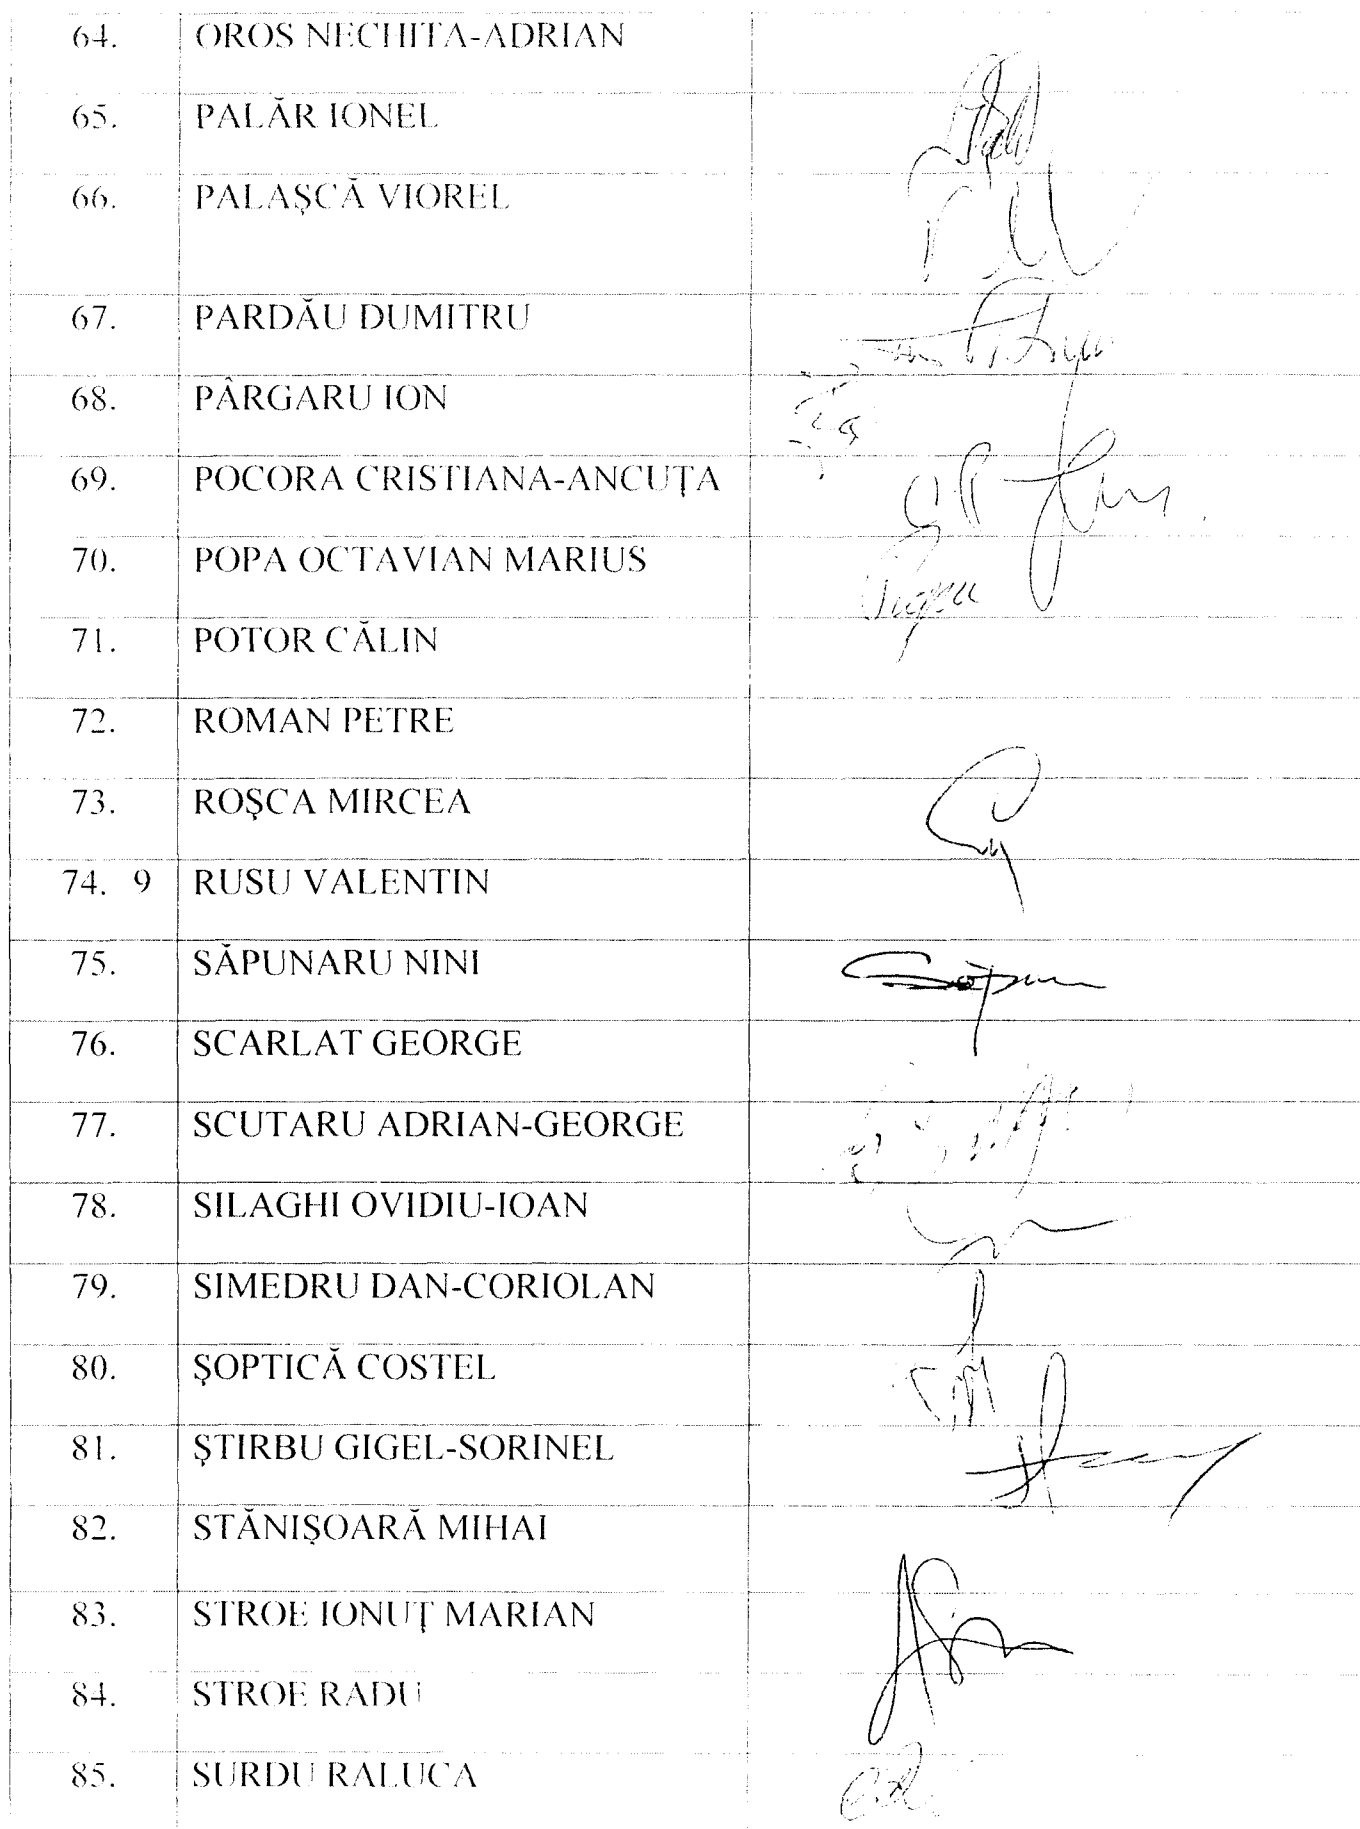 64. OROS NECHITA-ADRIAN
65. PALĂR IONEL
66. PALAŞCĂ VIOREL
67. PARDĂU DUMITRU
68. PÂRGARU ION
69. POCORA CRISTIANA-ANCUȚA
70. POPA OCTAVIAN MARIUS
71. POTOR CĂLIN
72. ROMAN PETRE
73. ROŞCA MIRCEA
74. 9 RUSU VALENTIN
75. SĂPUNARU NINI
76. SCARLAT GEORGE
77. SCUTARU ADRIAN-GEORGE
78. SILAGHI OVIDIU-IOAN
79. SIMEDRU DAN-CORIOLAN
80. ŞOPTICĂ COSTEL
81. ŞTIRBU GIGEL-SORINEL
82. STĂNIŞOARĂ MIHAI
83. STROE IONUȚ MARIAN
84. STROE RADU
85. SURDU RALUCA